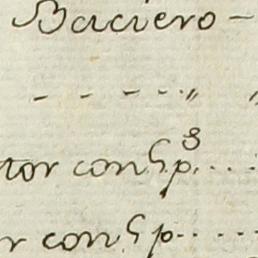 Baciero -
- - - - - „ „
tor con h p^s....
r con h p.....